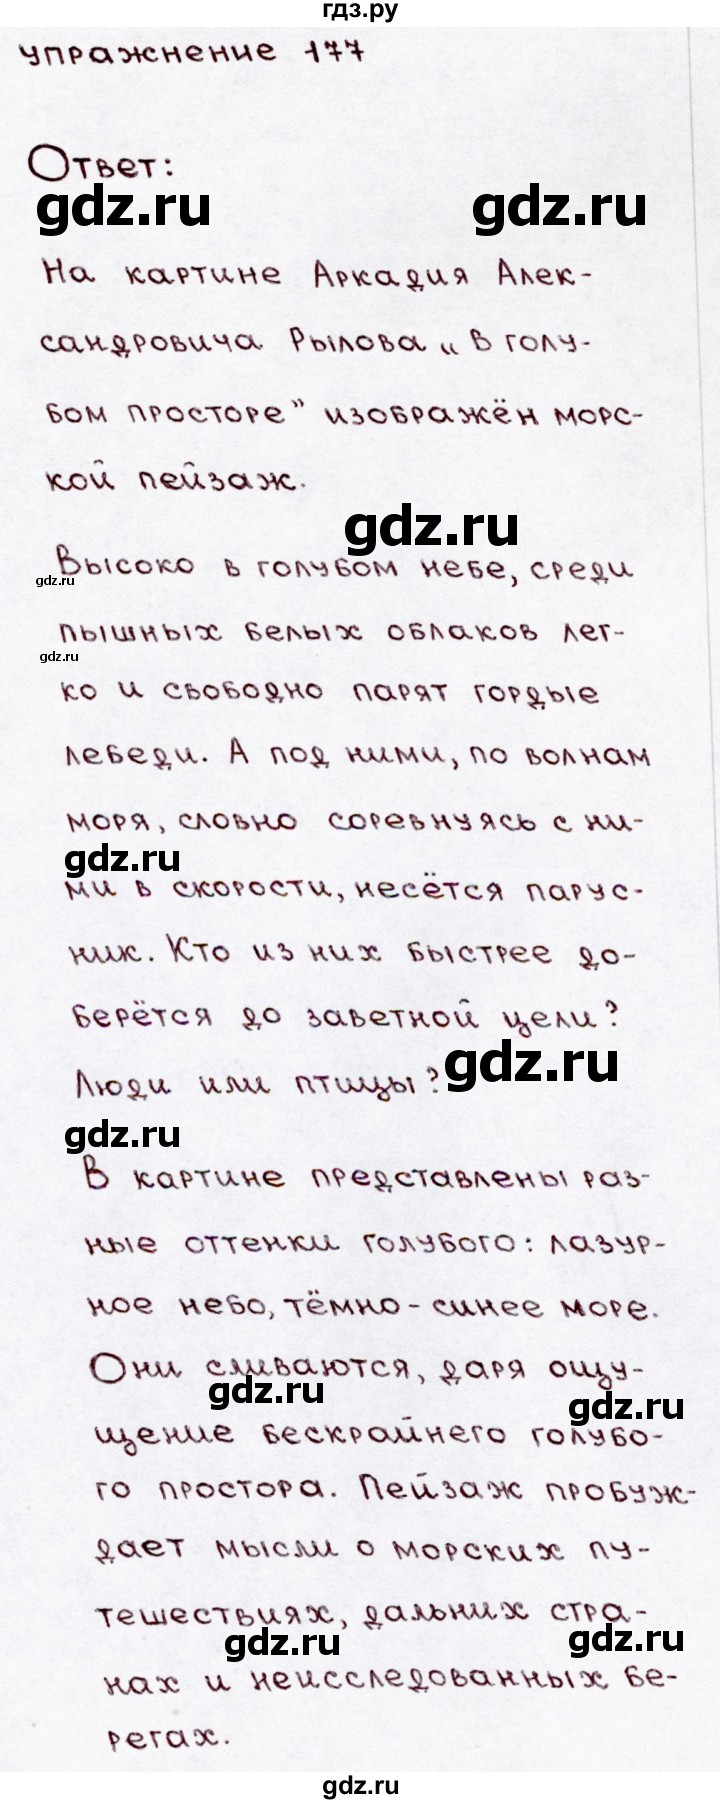 гдз.ру
упражнение 177
Ответ:
gdz.ru gdz.ru
На картине Аркадия Алек-
сандровича Рылова „В голу-
бом просторе” изображён морс-
кой пейзаж.
gdz.ru
Высоко в голубом небе, среди
gdz.ru
пышных белых облаков лег-
gdz.ru
ко и свободно парят гордые
лебеди. А под ними, по волнам
моря, словно соревнуясь с ни-
gdz.ru
ми в скорости, несётся парус-
ник. Кто из них быстрее до-
берётся до заветной цели?
gdz.ru
Люди или птицы?
gdz.ru
В картине представлены раз-
ные оттенки голубого: лазур-
ное небо, тёмно-синее море.
Они сливаются, даря ощу-
gdz.ru
gdz.ru
щение бескрайнего голубо-
го простора. Пейзаж пробуж-
дает мысли о морских пу-
тешествиях, дальних стра-
gdz.ru gdz.ru
нах и неисследованных бе-
регах.
gdz.ru